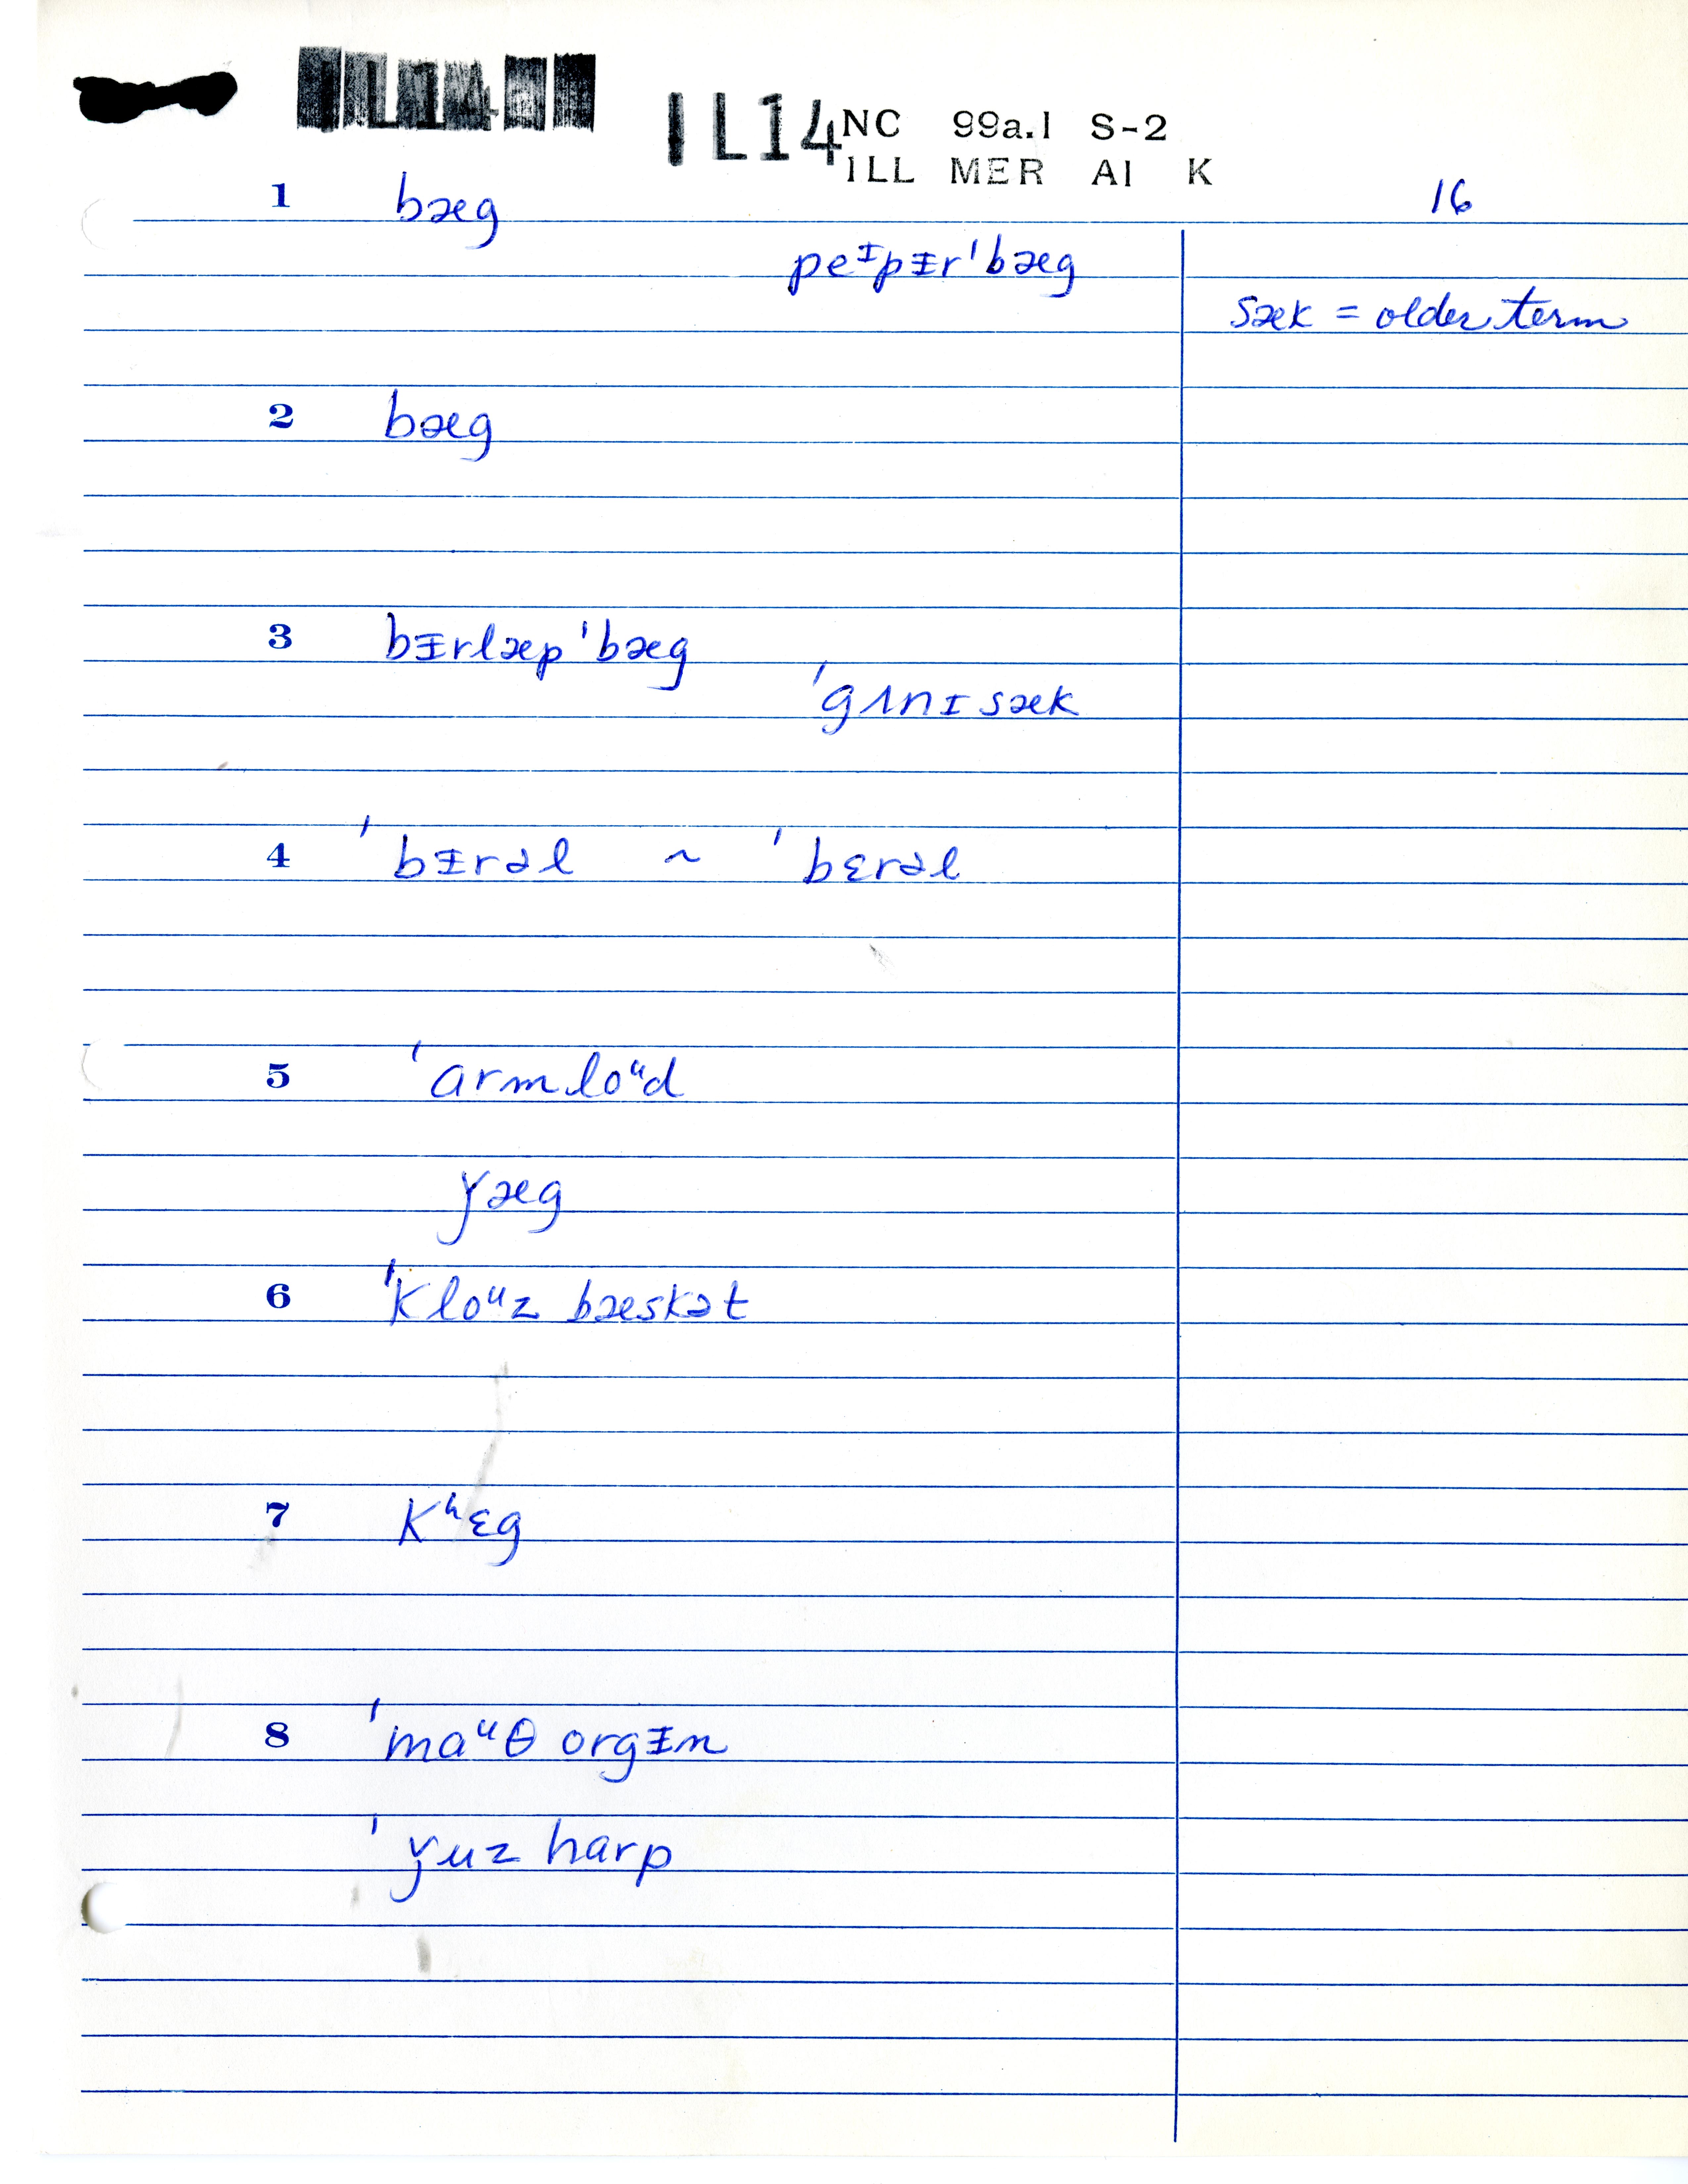 IL14
IL14 NC 99a.1 S-2
ILL MER A1 K
1 bæg 16
peᶦpɪ̵r'bæg
sæk = older term
2 bæg
3 bɪ̵rlæp 'bæg
'gʌnɪ sæk
4 'bɪ̵rəl ~ 'bɛrəl
5 'armloᵘd
ǰæg
6 'kloᵘz bæskət
7 kʰɛg
8 'maᵘθ orgɪ̵n
'ǰuz harp